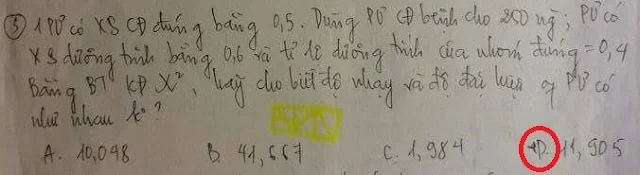 ③ 1 PỨ có XS CĐ đúng bằng 0,5. Dùng PỨ CĐ bệnh cho 250 ng, PỨ có
XS dương tính bằng 0,6 và tỉ lệ dương tính của nhóm đúng = 0,4
Bằng BT KĐ X², hãy cho biết độ nhạy và độ đặc hiệu PỨ có
như nhau k°?
A. 10,048 B. 41,667 C. 1,984 D. 11,905